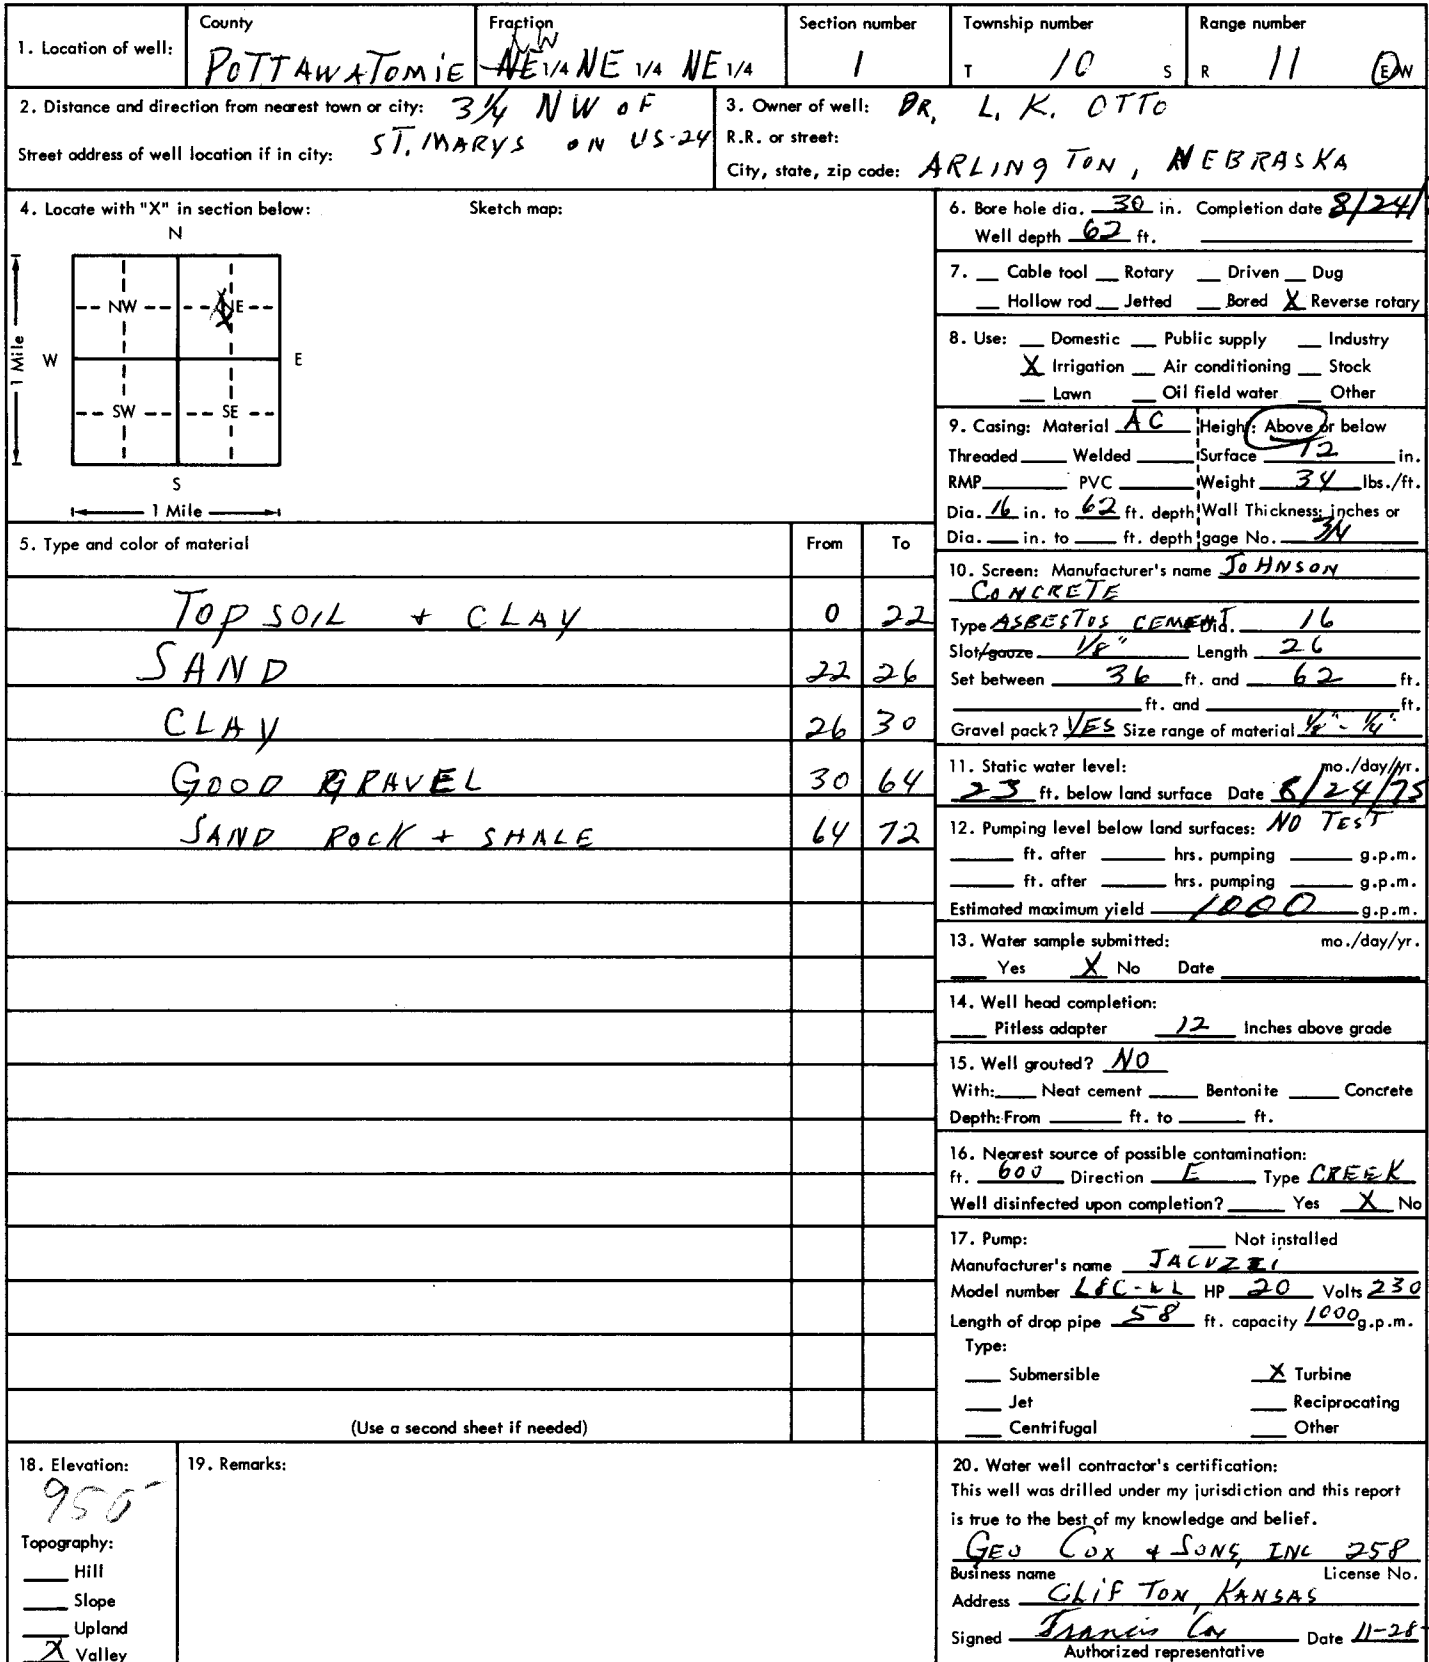 County
Fraction
Section number
Township number
Range number
1. Location of well:
POTTAWATOMIE
NW
NE 1/4 NE 1/4 NE 1/4
1
T 10 S
R 11 E/W
2. Distance and direction from nearest town or city: 3 1/4 NW OF
Street address of well location if in city: ST. MARYS ON US-24
3. Owner of well: DR. L. K. OTTO
R.R. or street:
City, state, zip code: ARLINGTON, NEBRASKA
4. Locate with "X" in section below:
Sketch map:
N
NW NE
W E
1 Mile
SW SE
S
1 Mile
5. Type and color of material From To
TOP SOIL + CLAY 0 22
SAND 22 26
CLAY 26 30
GOOD GRAVEL 30 64
SAND ROCK + SHALE 64 72
(Use a second sheet if needed)
6. Bore hole dia. 30 in. Completion date 8/24/
Well depth 62 ft.
7. __ Cable tool __ Rotary __ Driven __ Dug
__ Hollow rod __ Jetted __ Bored X Reverse rotary
8. Use: __ Domestic __ Public supply __ Industry
X Irrigation __ Air conditioning __ Stock
__ Lawn __ Oil field water __ Other
9. Casing: Material AC Height: Above or below
Threaded ____ Welded ____ Surface 12 in.
RMP ____ PVC ____ Weight 34 lbs./ft.
Dia. 16 in. to 62 ft. depth Wall Thickness: inches or
Dia. __ in. to __ ft. depth gage No. 3/4
10. Screen: Manufacturer's name JOHNSON
CONCRETE
Type ASBESTOS CEMENT Dia. 16
Slot/gauze 1/8" Length 26
Set between 36 ft. and 62 ft.
____ ft. and ____ ft.
Gravel pack? YES Size range of material 1/8" - 1/4"
11. Static water level: mo./day/yr.
23 ft. below land surface Date 8/24/75
12. Pumping level below land surfaces: NO TEST
____ ft. after ____ hrs. pumping ____ g.p.m.
____ ft. after ____ hrs. pumping ____ g.p.m.
Estimated maximum yield 1000 g.p.m.
13. Water sample submitted: mo./day/yr.
__ Yes X No Date ____
14. Well head completion:
__ Pitless adapter 12 Inches above grade
15. Well grouted? NO
With: __ Neat cement __ Bentonite __ Concrete
Depth: From ____ ft. to ____ ft.
16. Nearest source of possible contamination:
ft. 600 Direction E Type CREEK
Well disinfected upon completion? ____ Yes X No
17. Pump: __ Not installed
Manufacturer's name JACUZZI
Model number HP 20 Volts 230
Length of drop pipe 58 ft. capacity 1000 g.p.m.
Type:
__ Submersible X Turbine
__ Jet __ Reciprocating
__ Centrifugal __ Other
18. Elevation:
950
Topography:
__ Hill
__ Slope
__ Upland
X Valley
19. Remarks:
20. Water well contractor's certification:
This well was drilled under my jurisdiction and this report
is true to the best of my knowledge and belief.
GEO COX & SONS, INC 258
Business name License No.
Address CLIFTON, KANSAS
Signed Francis Cox Date 11-28-
Authorized representative